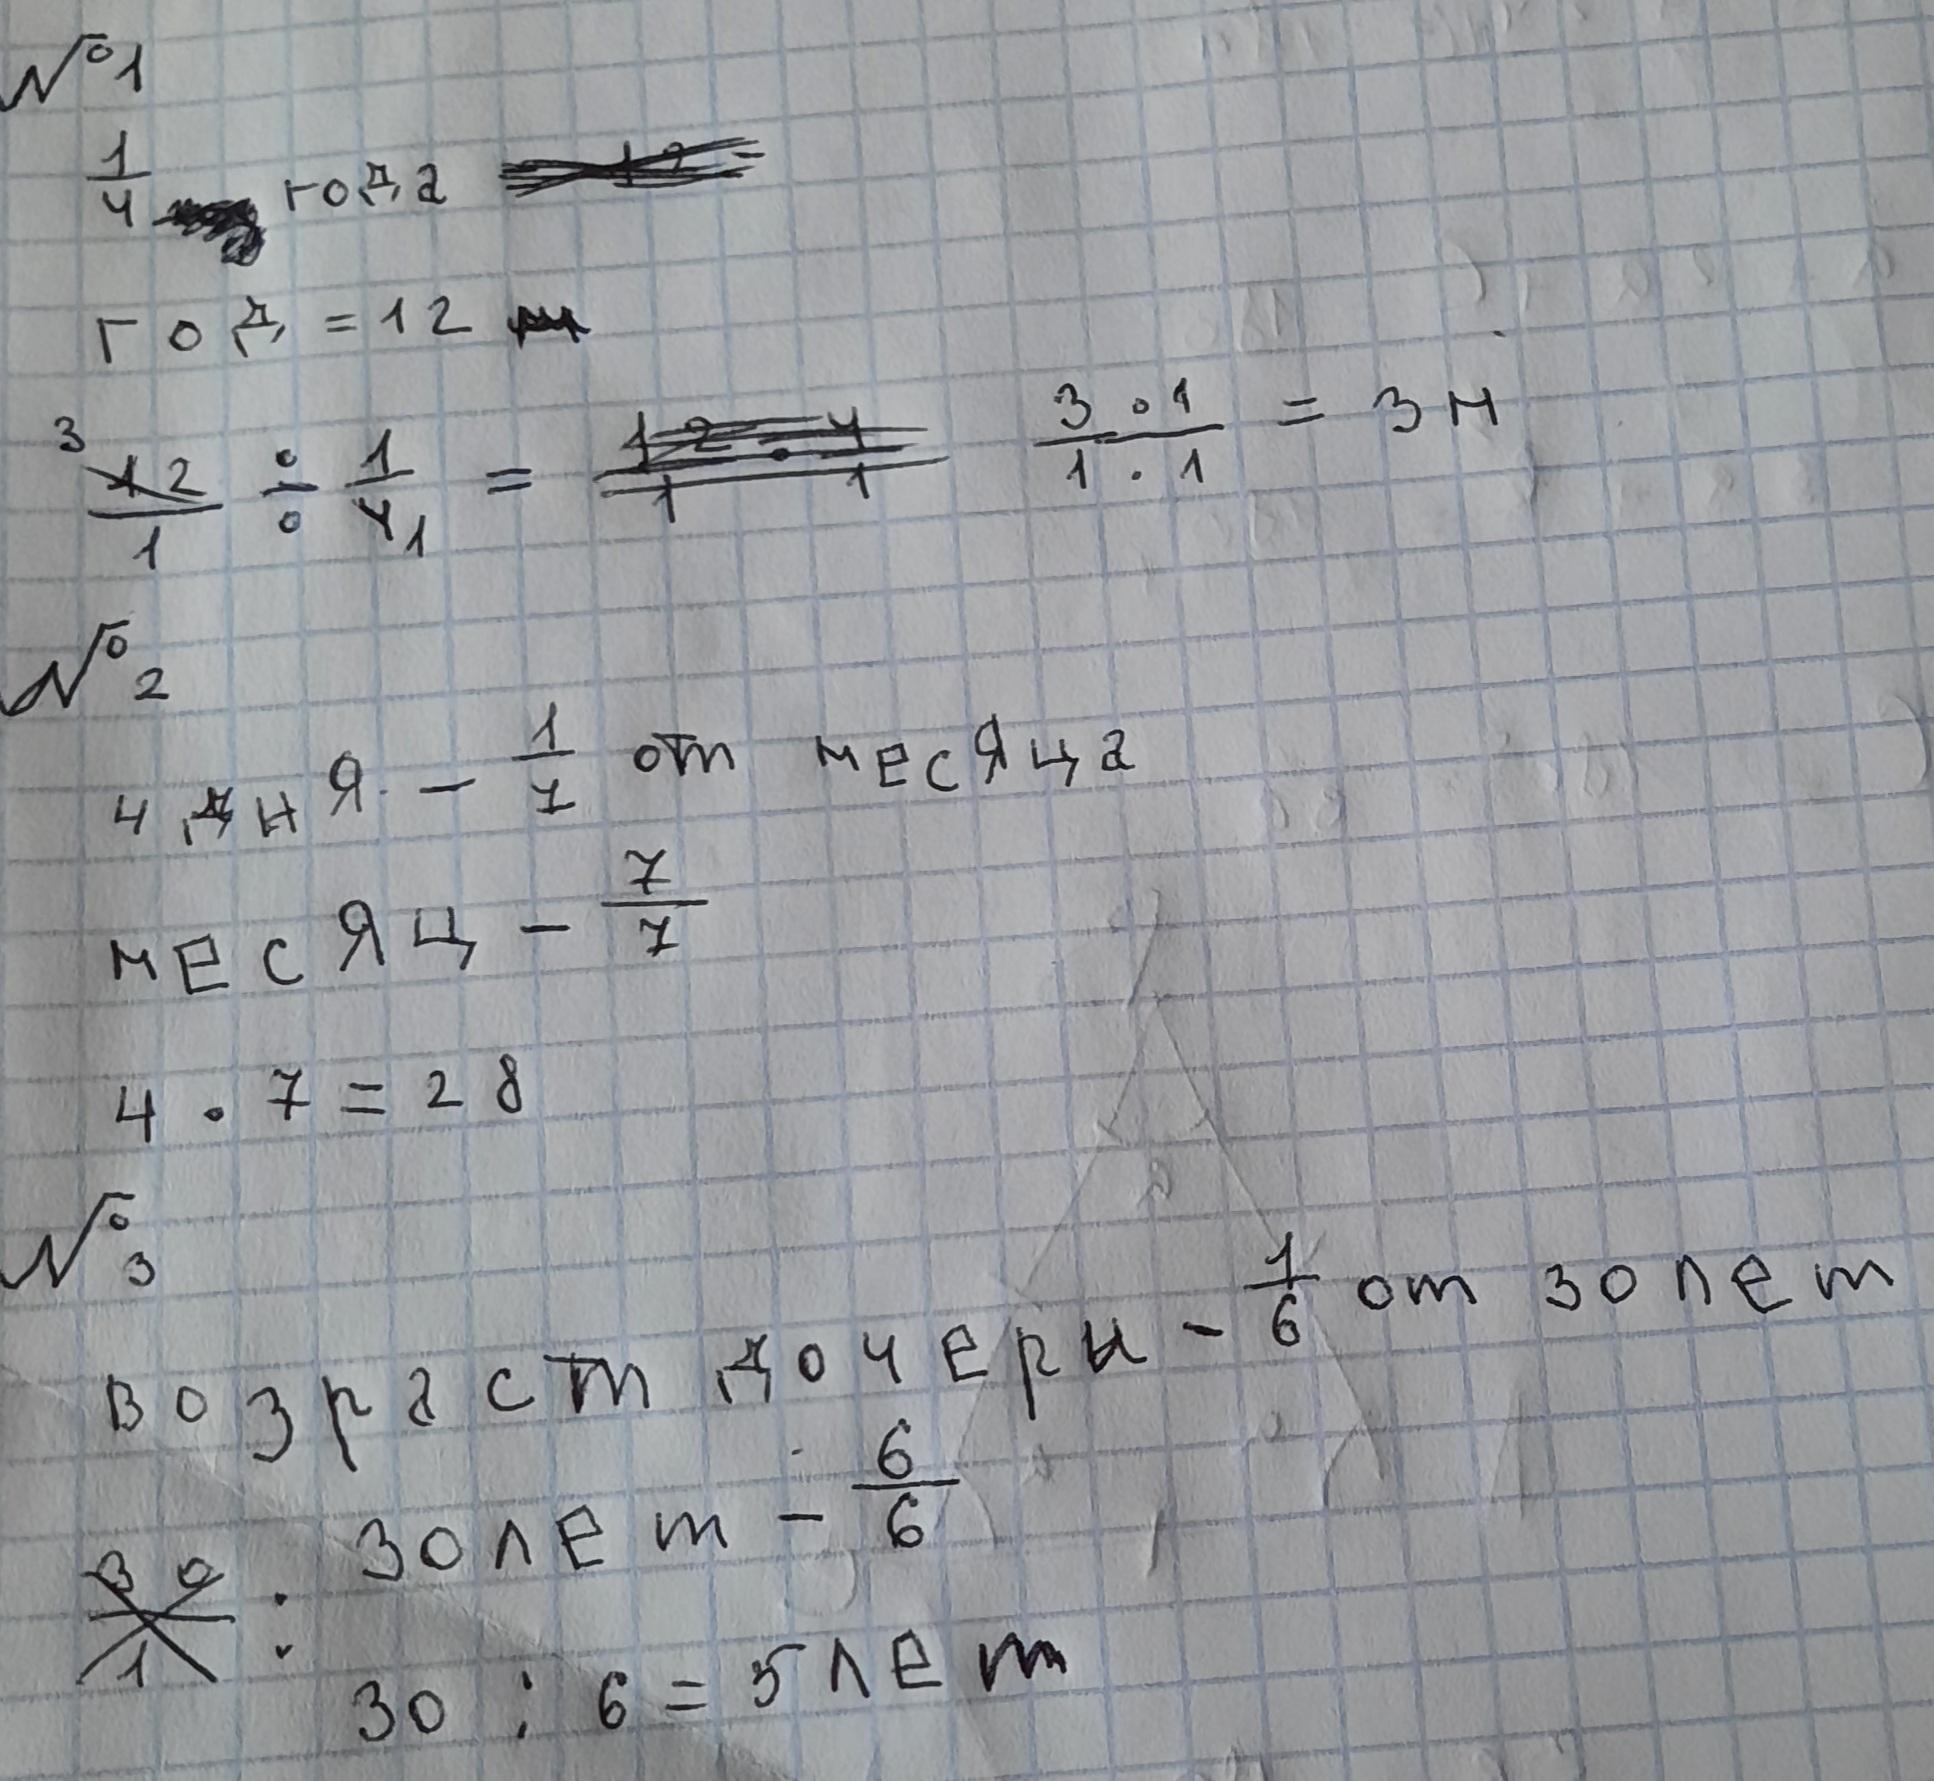 №1
1/4 года
год = 12
3 12/1 ÷ 1/4 1 = 3·1/1·1 = 3м
№2
4 дня - 1/7 от месяца
месяц - 7/7
4 · 7 = 28
№3
возраст дочери - 1/6 от 30 лет
30 лет - 6/6
30/1 :
30 : 6 = 5 лет